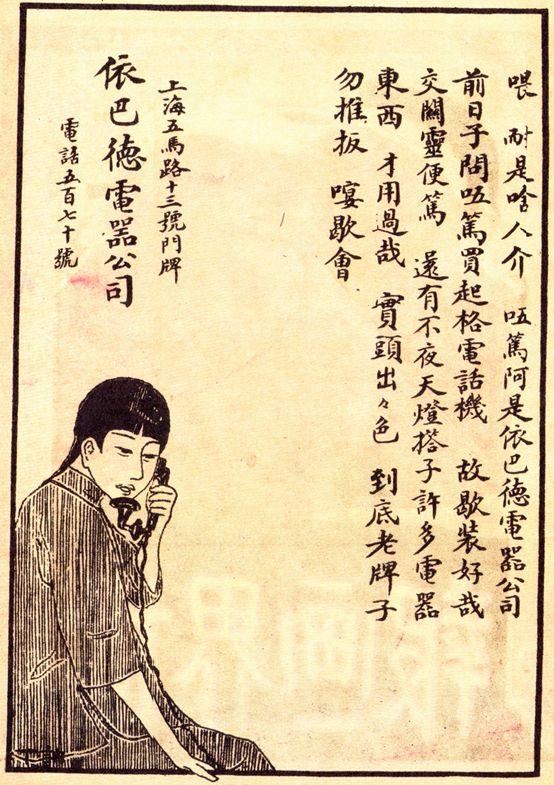 喂 耐是啥人介 㕶篤阿是依巴德電器公司
前日子問㕶篤買起格電話機 故歇裝好哉
交關靈便篤 還有不夜天燈搭子許多電器
東西 才用過哉 實頭出々色 到底老牌子
勿推扳 歇會
上海五馬路十三號門牌
依巴德電器公司
電話五百七十號